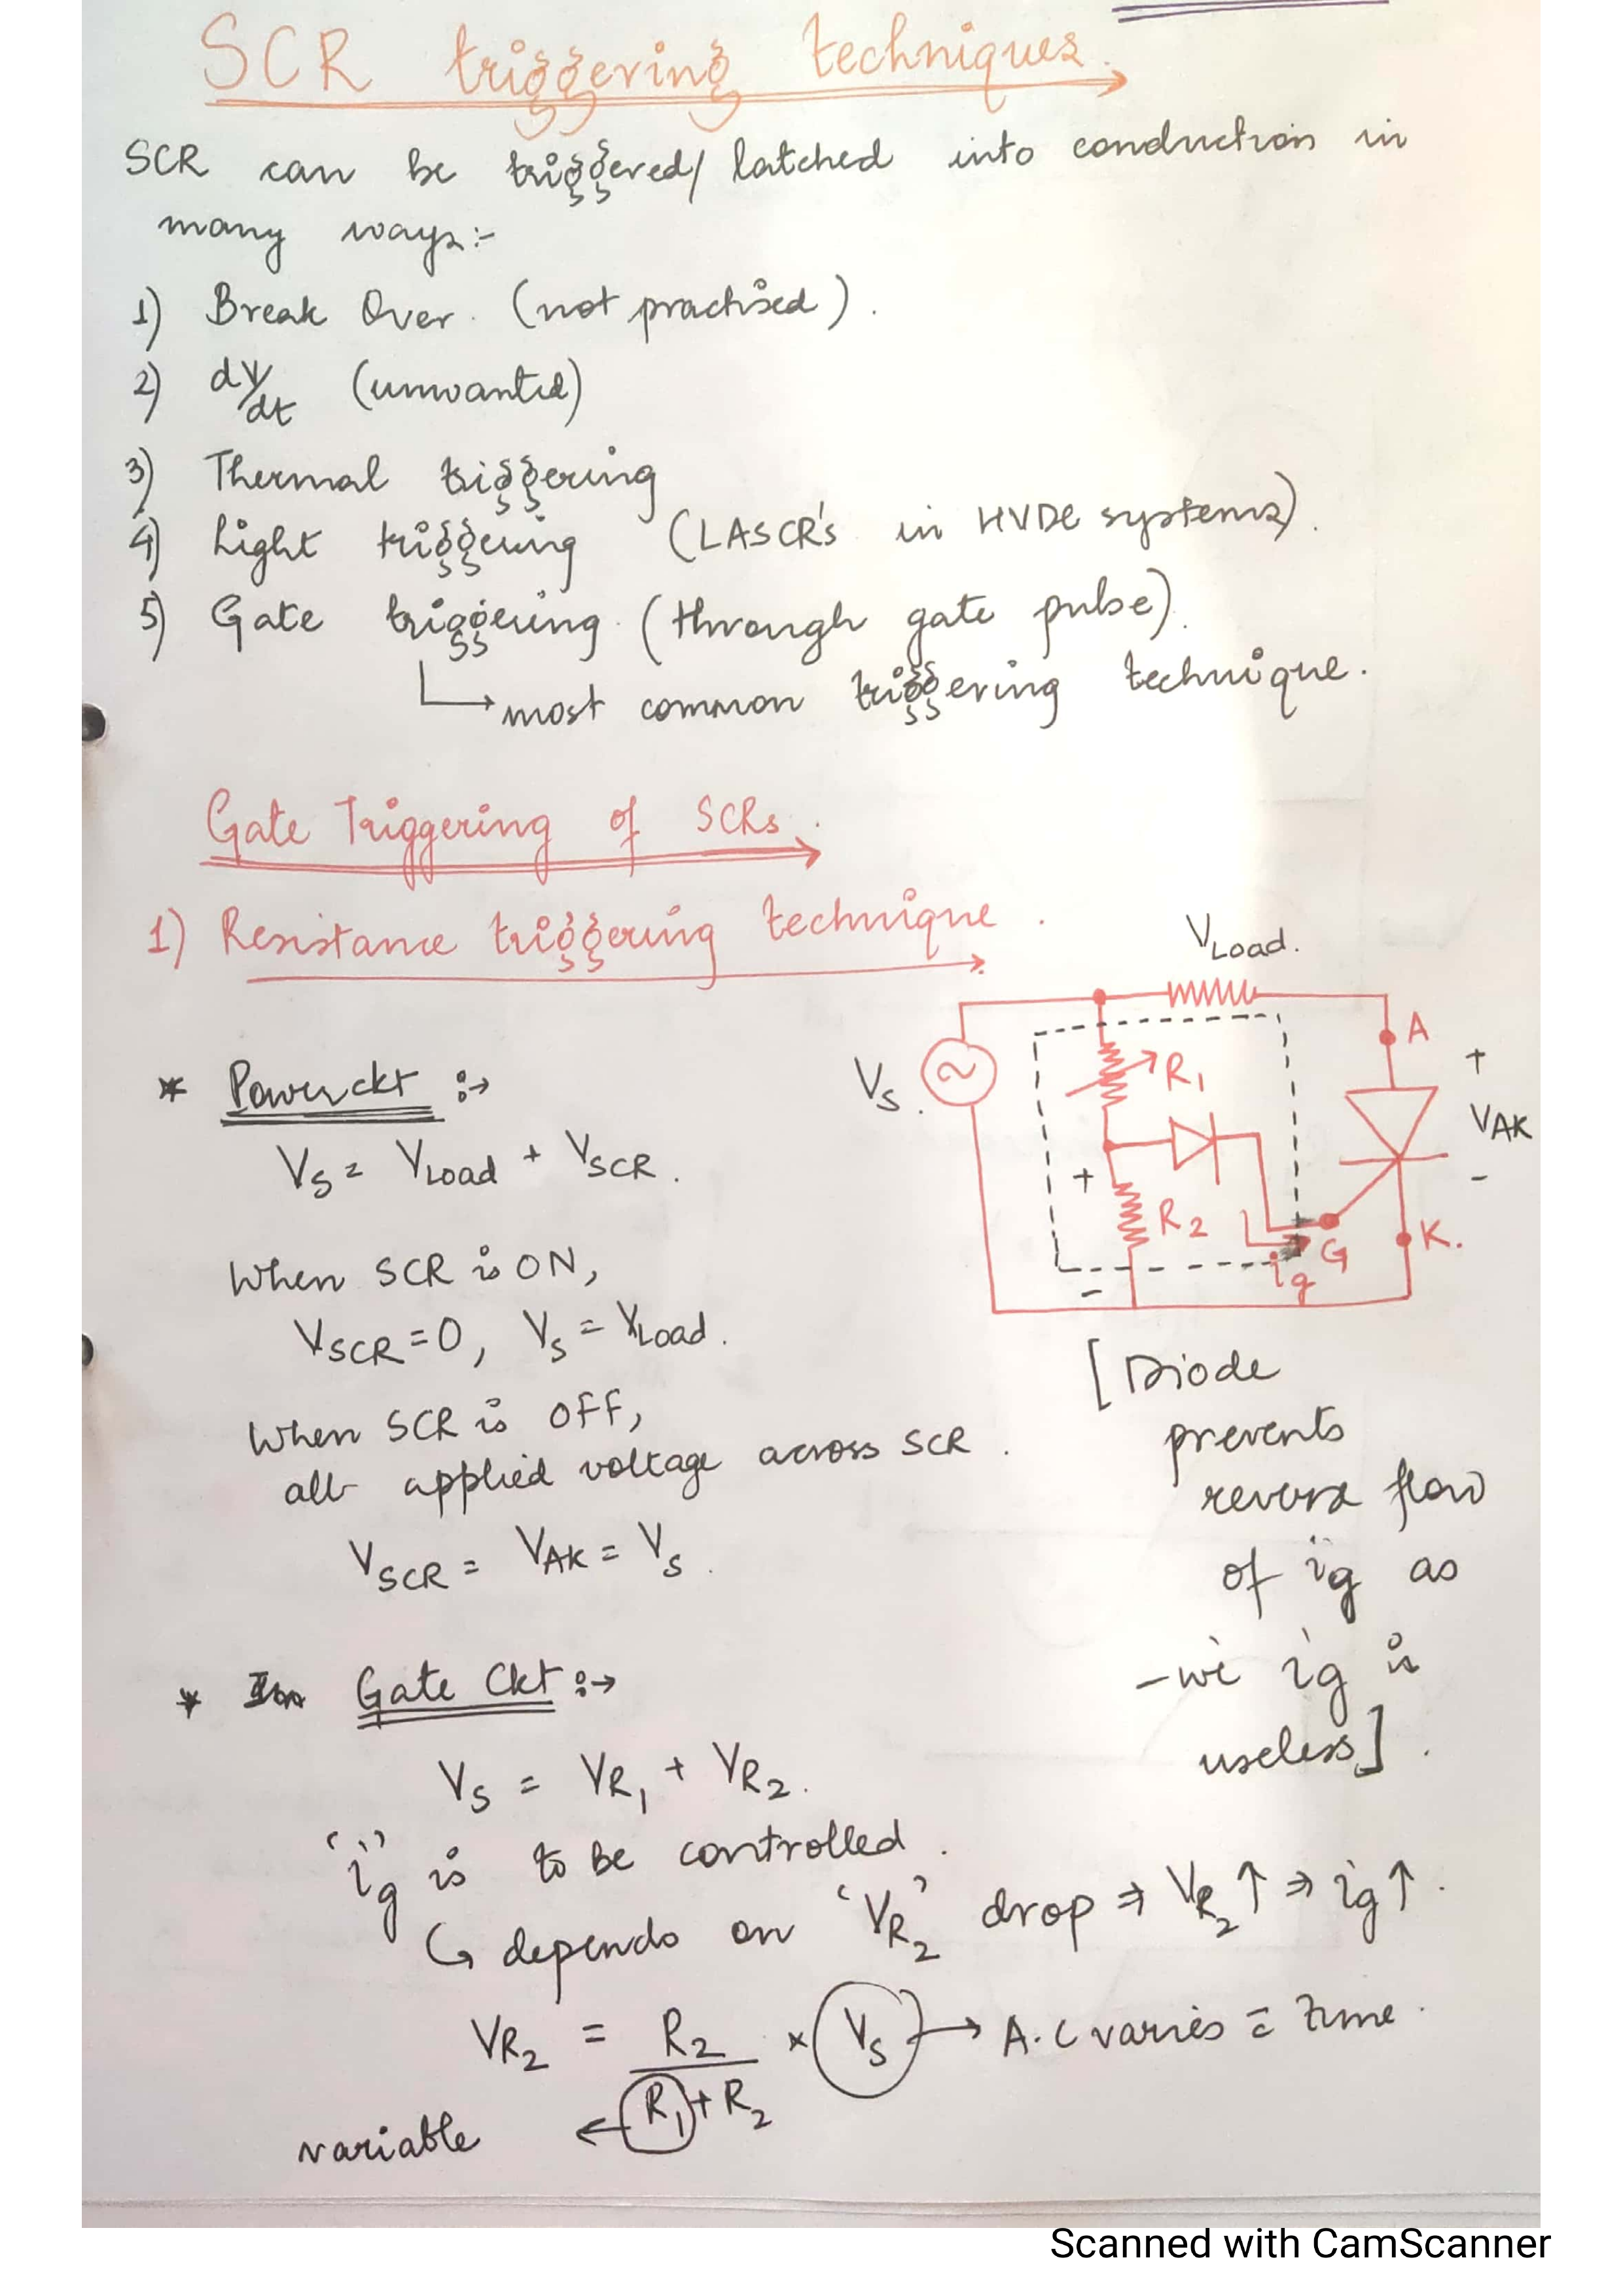 SCR triggering techniques.
SCR can be triggered/ latched into conduction in
many ways:-
1) Break Over. (not practised).
2) dV/dt (unwanted)
3) Thermal triggering
4) Light triggering (LASCR's in HVDC systems).
5) Gate triggering. (through gate pulse).
↳ most common triggering technique.
Gate Triggering of SCRs.
1) Resistance triggering technique.
VLoad.
Vs.
R1
R2
+
-
ig
G
A
K.
+
VAK
-
* Power ckt :→
Vs = VLoad + VSCR.
When SCR is ON,
VSCR = 0, Vs = VLoad.
When SCR is OFF,
all applied voltage across SCR.
VSCR = VAK = Vs.
[Diode
prevents
reverse flow
of ig as
-ve ig is
useless].
* Gate Ckt :→
Vs = VR1 + VR2.
'ig' is to be controlled.
↳ depends on 'VR2' drop ⇒ VR2↑ ⇒ ig↑.
VR2 = R2 / (R1 + R2) × Vs → A.C varies c̄ time.
variable ←
Scanned with CamScanner